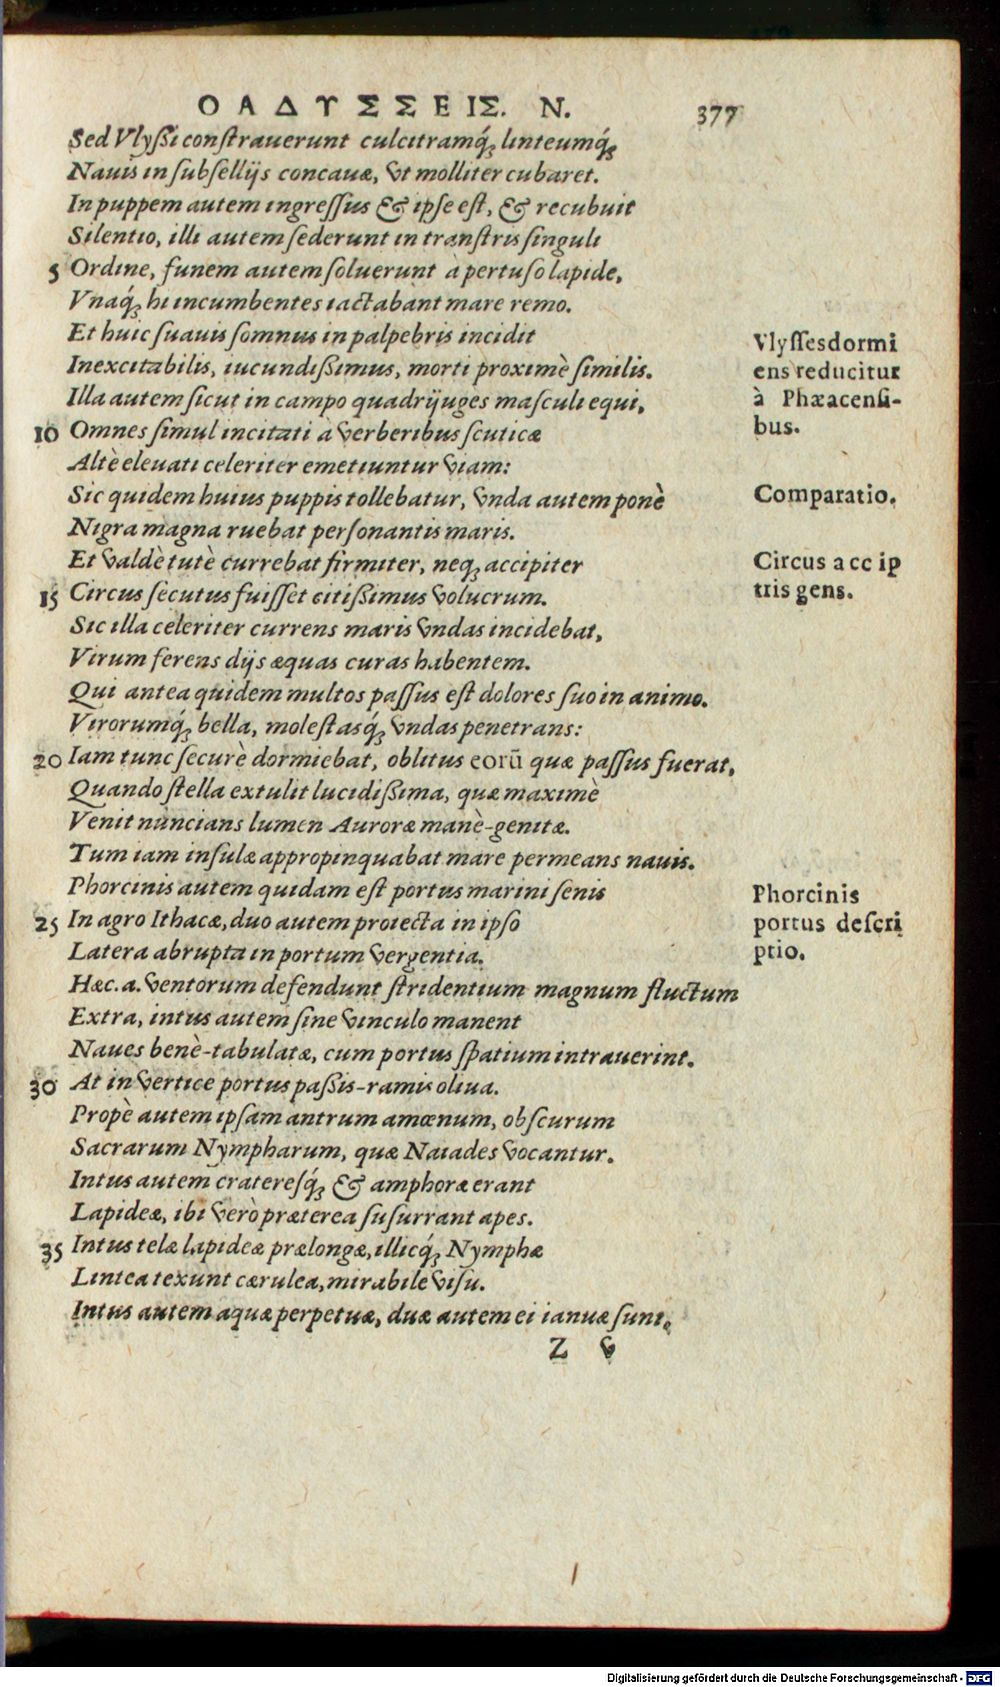 ΟΑΔΥΣΣΕΙΣ. Ν. 377
Sed Vlyßi constrauerunt culcitramq́; linteumq́;
Nauis in subsellijs concauæ, vt molliter cubaret.
In puppem autem ingressus & ipse est, & recubuit
Silentio, illi autem sederunt in transtris singuli
5 Ordine, funem autem soluerunt à pertuso lapide,
Vnaq́; hi incumbentes iactabant mare remo.
Et huic suauis somnus in palpebris incidit
Inexcitabilis, iucundißimus, morti proximè similis.
Illa autem sicut in campo quadrijuges masculi equi,
10 Omnes simul incitati à verberibus scuticæ
Altè eleuati celeriter emetiuntur viam:
Sic quidem huius puppis tollebatur, vnda autem ponè
Nigra magna ruebat personantis maris.
Et valdè tutè currebat firmiter, neq; accipiter
15 Circus secutus fuisset citißimus volucrum.
Sic illa celeriter currens maris vndas incidebat,
Virum ferens dijs æquas curas habentem.
Qui antea quidem multos passus est dolores suo in animo.
Virorumq́; bella, molestasq́; vndas penetrans:
20 Iam tunc securè dormiebat, oblitus eorū quæ passus fuerat,
Quando stella extulit lucidißima, quæ maximè
Venit nuncians lumen Auroræ manè-genitæ.
Tum iam insulæ appropinquabat mare permeans nauis.
Phorcinis autem quidam est portus marini senis
25 In agro Ithacæ, duo autem proiecta in ipso
Latera abrupta in portum vergentia.
Hæc. a. ventorum defendunt stridentium magnum fluctum
Extra, intus autem sine vinculo manent
Naues benè-tabulatæ, cum portus spatium intrauerint.
30 At in vertice portus paßis-ramis oliua.
Propè autem ipsam antrum amœnum, obscurum
Sacrarum Nympharum, quæ Naiades vocantur.
Intus autem crateresq́; & amphoræ erant
Lapideæ, ibi verò præterea susurrant apes.
35 Intus telæ lapideæ prælongæ, illicq́; Nymphæ
Lintea texunt cærulea, mirabile visu.
Intus autem aquæ perpetuæ, duæ autem ei ianuæ sunt.
Z v
Vlyssesdormi
ens reducitur
à Phæacensi-
bus.
Comparatio.
Circus accip
tris gens.
Phorcinis
portus descri
ptio.
Digitalisierung gefördert durch die Deutsche Forschungsgemeinschaft - DFG